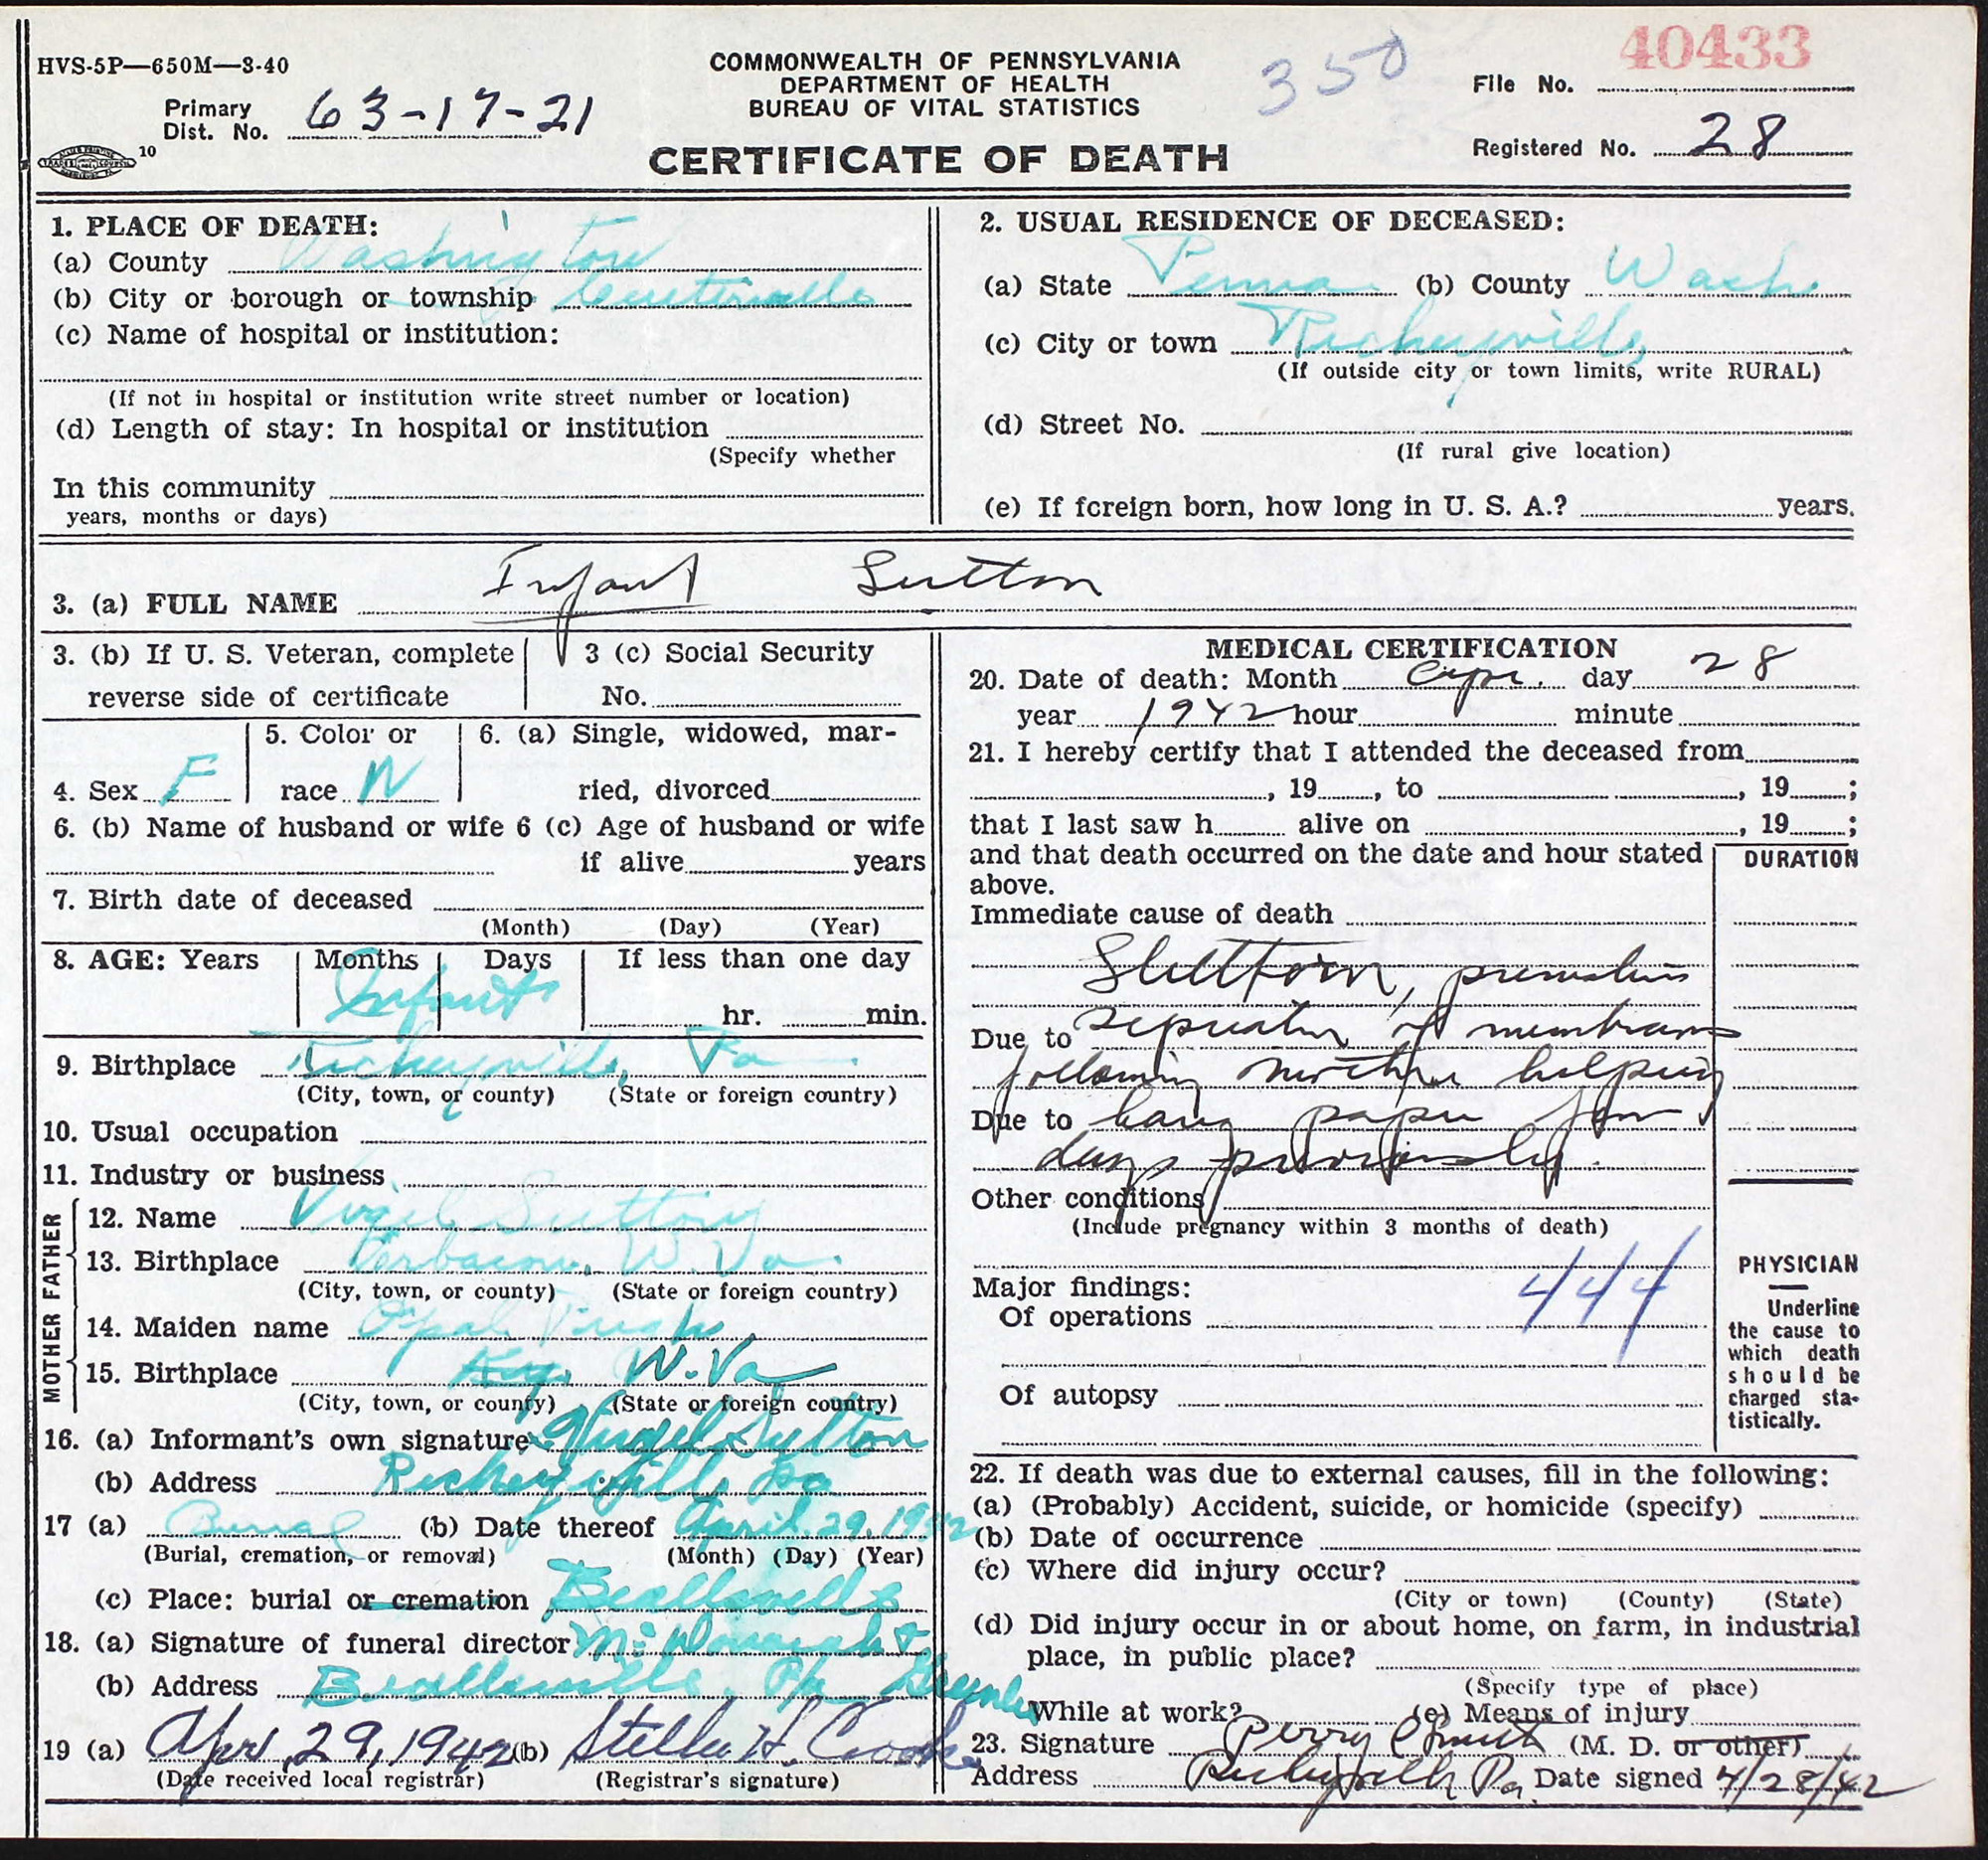 HVS-5P—650M—3-40
COMMONWEALTH OF PENNSYLVANIA
DEPARTMENT OF HEALTH
BUREAU OF VITAL STATISTICS
350
40433
File No.
Primary
Dist. No. 63-17-21
10
CERTIFICATE OF DEATH
Registered No. 28
1. PLACE OF DEATH:
(a) County Washington
(b) City or borough or township Centerville
(c) Name of hospital or institution:
(If not in hospital or institution write street number or location)
(d) Length of stay: In hospital or institution
(Specify whether
In this community
years, months or days)
2. USUAL RESIDENCE OF DECEASED:
(a) State Penna (b) County Wash
(c) City or town Richeyville
(If outside city or town limits, write RURAL)
(d) Street No.
(If rural give location)
(e) If foreign born, how long in U. S. A.? years.
3. (a) FULL NAME Infant Sutton
3. (b) If U. S. Veteran, complete
reverse side of certificate
3 (c) Social Security
No.
4. Sex F
5. Color or
race W
6. (a) Single, widowed, mar-
ried, divorced
6. (b) Name of husband or wife 6 (c) Age of husband or wife
if alive years
7. Birth date of deceased
(Month) (Day) (Year)
8. AGE: Years Months Days If less than one day
Infant hr. min.
9. Birthplace Richeyville, Pa
(City, town, or county) (State or foreign country)
10. Usual occupation
11. Industry or business
FATHER
12. Name Virgil Sutton
13. Birthplace W. Va.
(City, town, or county) (State or foreign country)
MOTHER
14. Maiden name Opal
15. Birthplace Ky. W. Va
(City, town, or county) (State or foreign country)
16. (a) Informant's own signature Virgil Sutton
(b) Address Richeyville Pa
17 (a) Burial (b) Date thereof April 29, 1942
(Burial, cremation, or removal) (Month) (Day) (Year)
(c) Place: burial or cremation Beallsville
18. (a) Signature of funeral director
(b) Address Beallsville, Pa
19 (a) Apr 29, 1942 (b) Stella H. Crooke
(Date received local registrar) (Registrar's signature)
MEDICAL CERTIFICATION
20. Date of death: Month Apr. day 28
year 1942 hour minute
21. I hereby certify that I attended the deceased from
, 19 , to , 19 ;
that I last saw h alive on , 19 ;
and that death occurred on the date and hour stated
above.
DURATION
Immediate cause of death
Stillborn, premature
Due to separation of membrane
following mother helping
Due to hang paper few
days previously.
Other conditions
(Include pregnancy within 3 months of death)
444
Major findings:
Of operations
Of autopsy
PHYSICIAN
Underline
the cause to
which death
should be
charged sta-
tistically.
22. If death was due to external causes, fill in the following:
(a) (Probably) Accident, suicide, or homicide (specify)
(b) Date of occurrence
(c) Where did injury occur?
(City or town) (County) (State)
(d) Did injury occur in or about home, on farm, in industrial
place, in public place?
(Specify type of place)
While at work? (e) Means of injury
23. Signature Perry (M. D. or other)
Address Richeyville Pa. Date signed 4/28/42